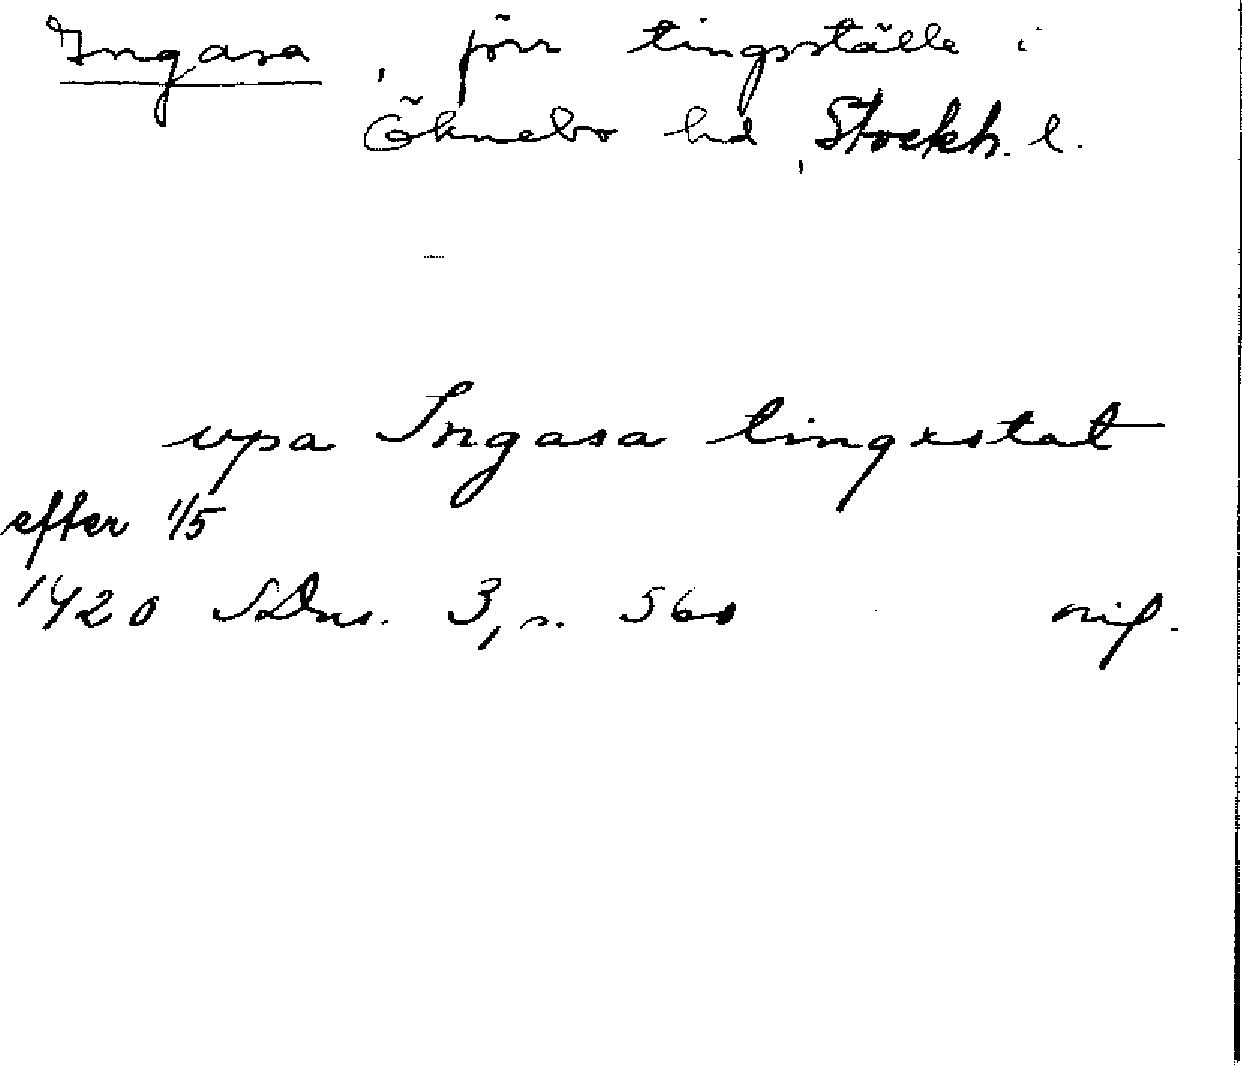 Ingasa, förr tingsställe i
Öknebo hd, Stockh. l.
upa Ingasa tingxstat
efter 1/5
1420 SDns. 3, s. 560 orig.